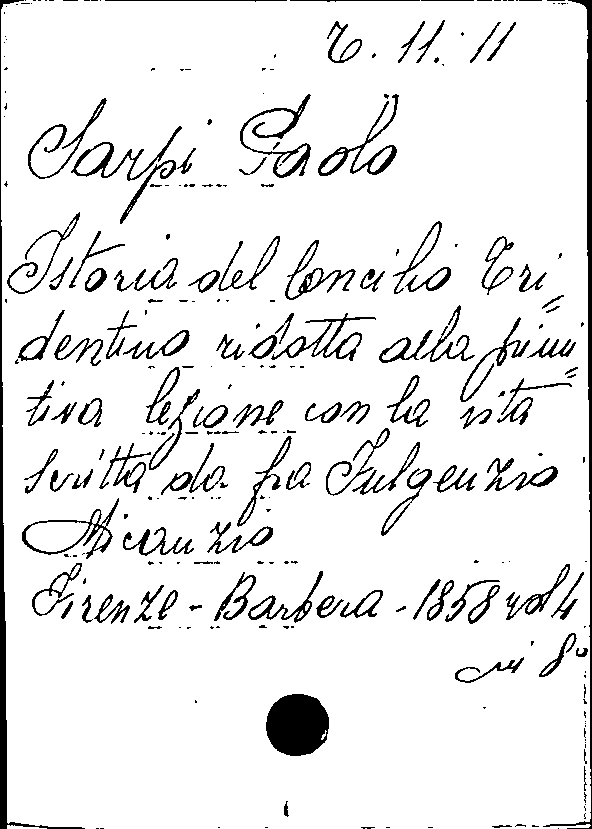 7. 11. 11
Sarpi Paolo
Istoria del Concilio Tri=
dentino ridotta alla primi=
tiva lezione con la vita
scritta da fra Fulgenzio
Micanzio
Firenze - Barbera - 1858 vol 4
in 8º